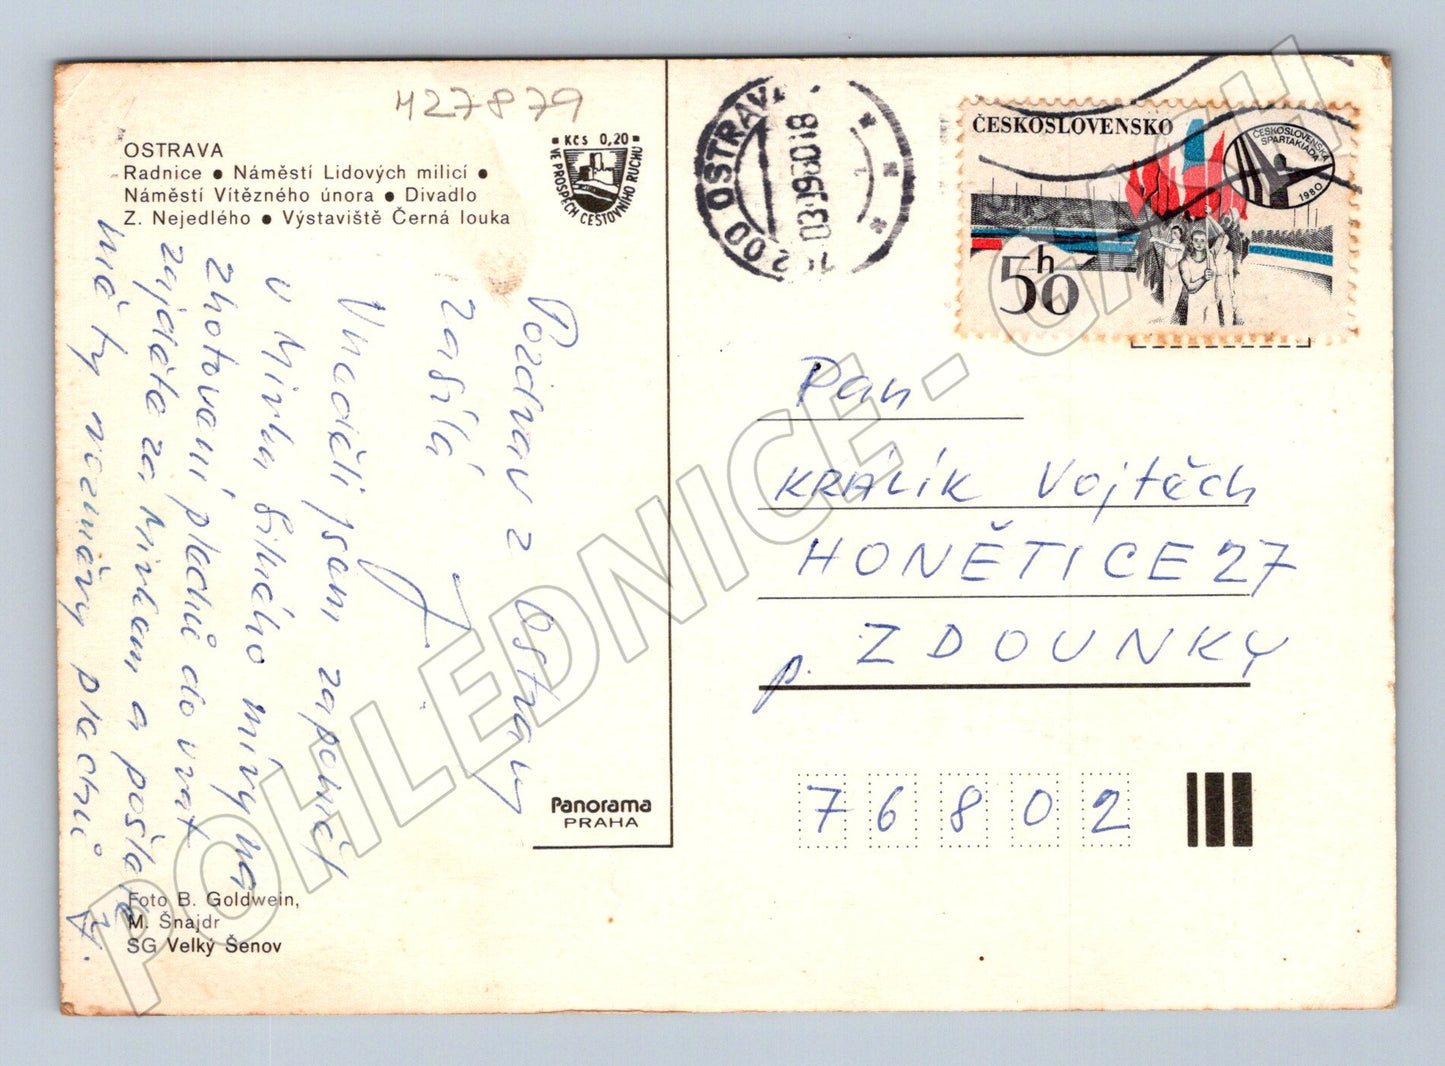 M27879
OSTRAVA
Radnice ● Náměstí Lidových milicí ●
Náměstí Vítězného února ● Divadlo
Z. Nejedlého ● Výstaviště Černá louka
Kčs 0,20
VE PROSPĚCH CESTOVNÍHO RUCHU
Pozdrav z Ostravy
zasílá
V neděli jsem zapoměl
u Mirka
zhotovení plachů do vrat
zajděte za Mirkem a pošlete
mě ty rozměry plachů
Panorama
PRAHA
Foto B. Goldwein,
M. Šnajdr
SG Velký Šenov
OSTRAVA
ČESKOSLOVENSKO
ČESKOSLOVENSKÁ
SPARTAKIÁDA
1980
50 h
Pan
KRÁLÍK Vojtěch
HONĚTICE 27
p. ZDOUNKY
76802
POHLEDNICE - CACH